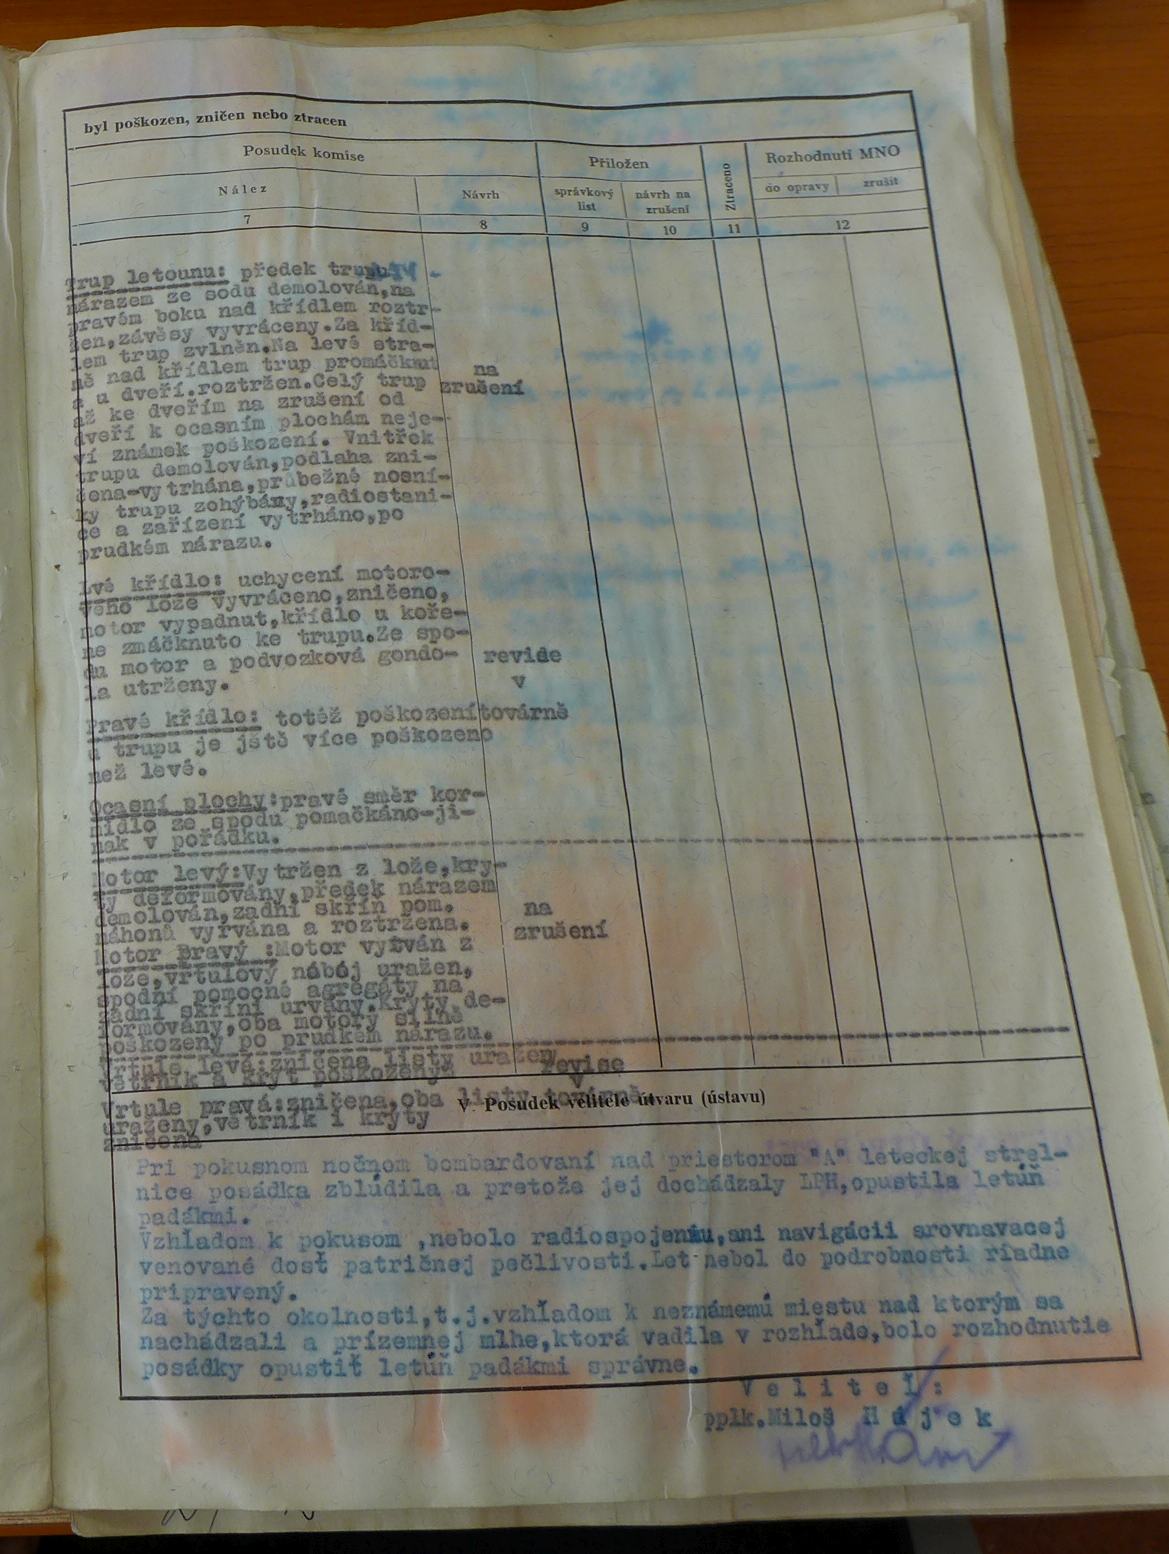 byl poškozen, zničen nebo ztracen
Posudek komise
Přiložen
Ztraceno
Rozhodnutí MNO
Nález
Návrh
správkový list
návrh na zrušení
do opravy
zrušit
7
8
9
10
11
12
Trup letounu: předek trupu
nárazem ze sodu demolován,na
pravém boku nad křídlem roztr-
žen,závěsy vyvráceny.Za kříd-
lem trup zvlněn.Na levé stra-
ně nad křídlem trup promáčknut
a u dveří.roztržen.Celý trup
až ke dveřím na zrušení od
dveří k ocasním plochám neje-
ví známek poškození. Vnitřek
trupu demolován,podlaha zni-
čena-vytrhána,průbežné nosní-
ky trupu zohýbány,radiostani-
ce a zařízení vytrháno,po
prudkém nárazu.
na
zrušení
Lvé křídlo: uchycení motoro-
vého lože vyvráceno,zničeno,
motor vypadnut,křídlo u koře-
ne zmáčknuto ke trupu.Ze spo-
du motor a podvozková gondo-
la utrženy.
revide
v
továrně
Pravé křídlo: totéž poškození
u trupu je jště více poškozeno
než levé.
Ocasní plochy:pravé směr kor-
midlo ze spodu pomačkáno-ji-
nak v pořádku.
Motor levý:Vytržen z lože,kry-
ty deformovány,předek nárazem
demolován,zadní skříň pom.
náhonů vyrvána a roztržena.
na
zrušení
Motor Pravý :Motor vyrván z
lože,vrtulový náboj uražen,
spodní pomocné agregáty na
zadní skříni urvány.Kryty de-
formovány,oba motory silně
poškozeny po prudkém nárazu.
Vrtule levá:zničena listy uražen
větrník a kryt poškozeny
revise
v
továrně.
Vrtule pravá:zničena,oba listy
uraženy,větrník i kryty
zničena
V. Posudek velitele útvaru (ústavu)
Pri pokusnom nočnom bombardovaní nad priestorom "A" leteckej strel-
nice posádka zblúdila a pretože jej dochádzaly LPH,opustila letúň
padákmi.
Vzhľadom k pokusom ,nebolo radiospojeniu,ani navigácii srovnavacej
venované dosť patričnej pečlivosti.Let nebol do podrobnosti riadne
pripravený.
Za týchto okolnosti,t.j.vzhľadom k neznámemú miestu nad ktorým sa
nachádzali a prízemnej mlhe,ktorá vadila v rozhľade,bolo rozhodnutie
posádky opustiť letúň padákmi správne.
Veliteľ:
pplk.Miloš Hájek